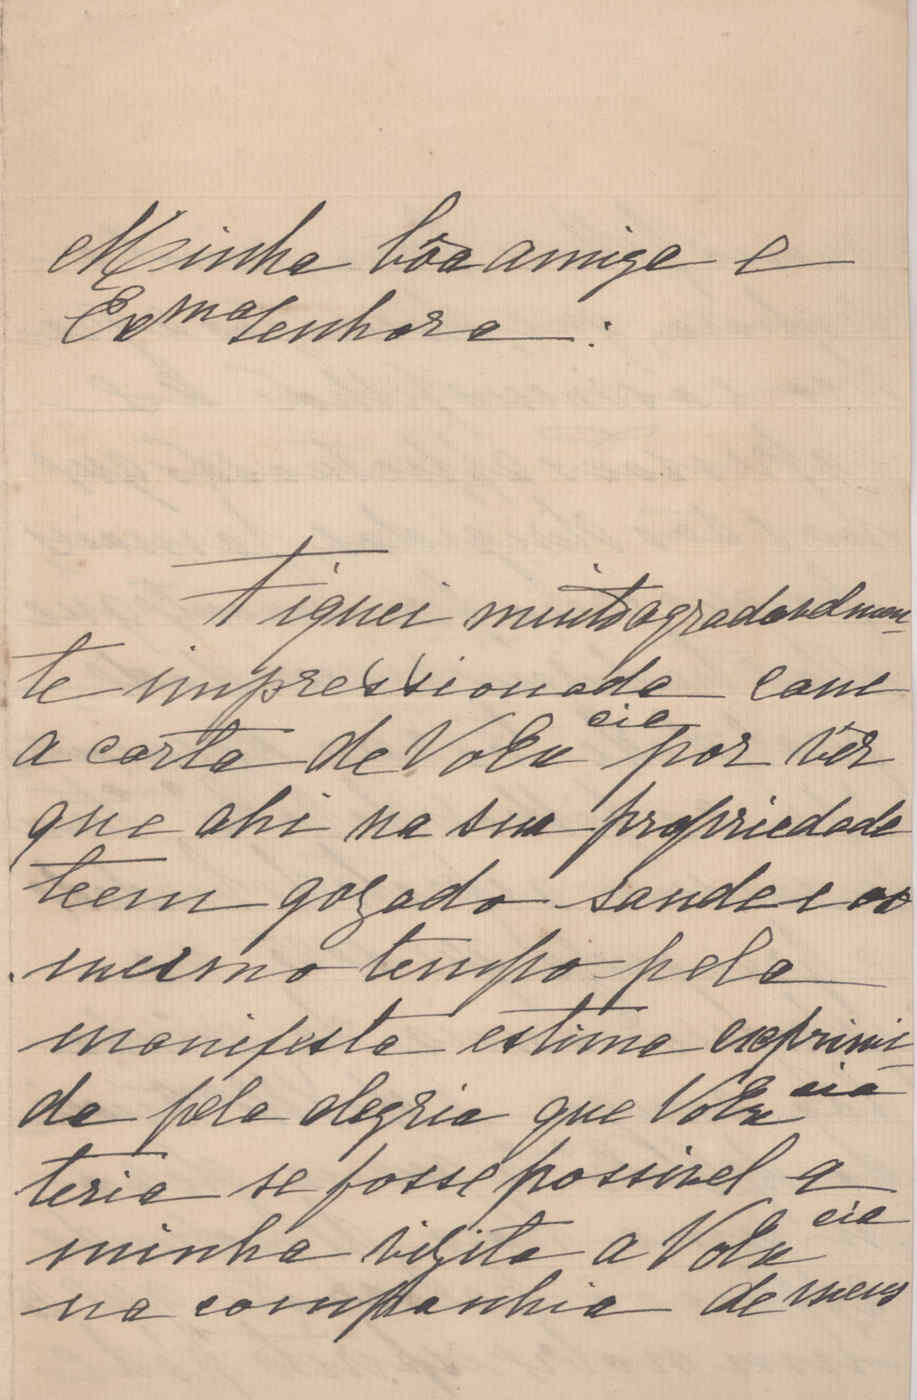 Minha bôa amiga e
Exma Senhora :
Fiquei muito agradavelmen-
te impressionada com
a carta de VoExcia por vêr
que ahi na sua propriedade
teem gozado saude e ao
mesmo tempo pela
manifesta estima exprimi-
da pela alegria que VoExcia
teria se fosse possivel a
minha vizita a VoExcia
na companhia de meus